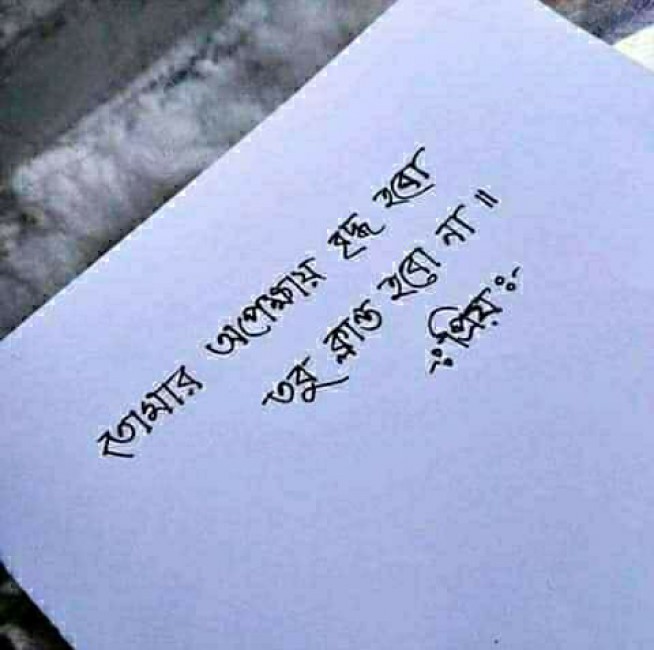 তোমার অপেক্ষায় বৃদ্ধ হবো
তবু ক্লান্ত হবো না ॥
ঃপ্রিয়ঃ-